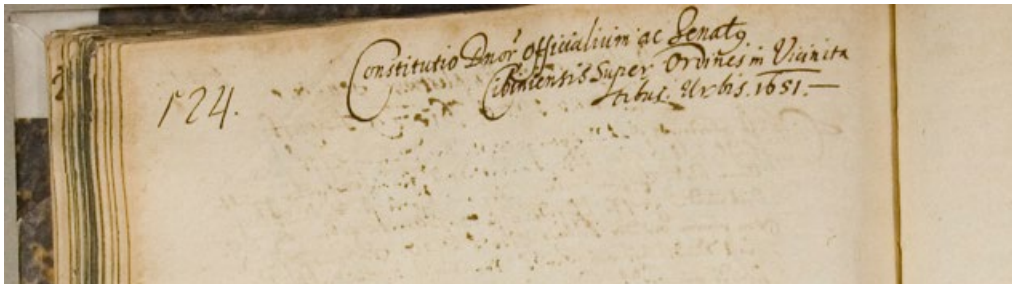 Constitutio Dnor̃ Officialium ac Senatꝯ
Cibiniensis Super Ordines in Vicinita
tibus. Urbis. 1651.—
124.